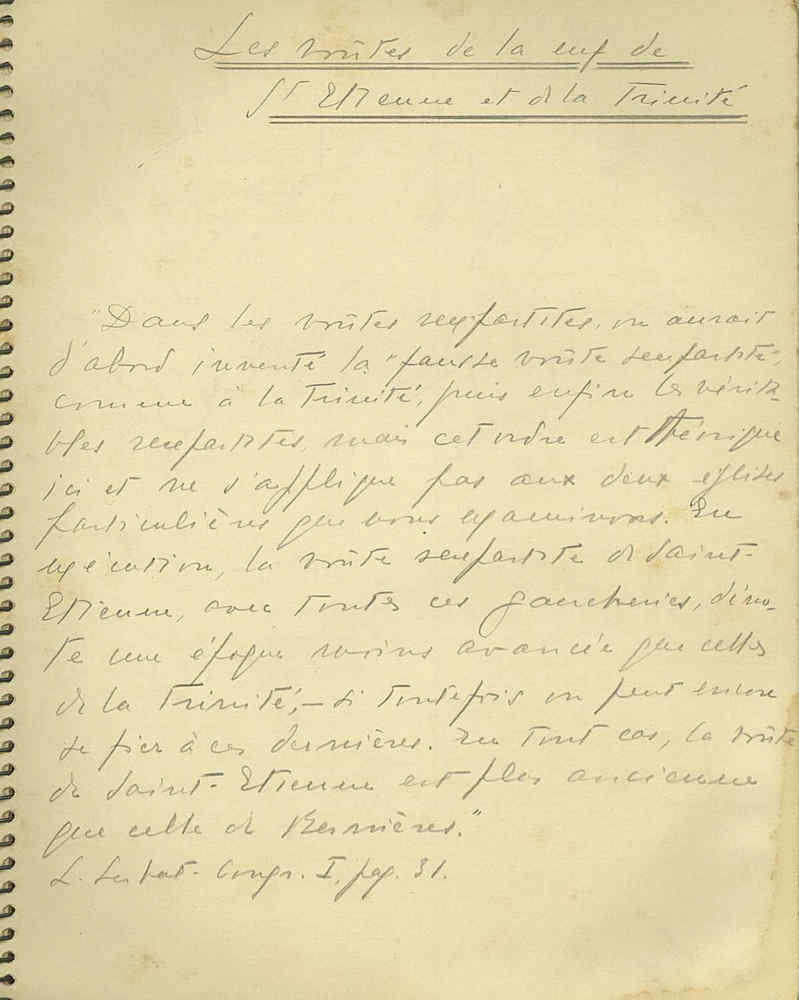 Les voûtes de la nef de
St Etienne et de la Trinité
"Dans les voûtes sexpartites, on aurait
d'abord inventé la "fausse voûte sexpartite",
comme à la Trinité, puis enfin les vérita-
bles sexpartites, mais cet ordre est théorique
ici et ne s'applique pas aux deux églises
particulières que nous examinons. En
exécution, la voûte sexpartite de Saint-
Etienne, avec toutes ces gaucheries, déno-
te une époque moins avancée que celles
de la Trinité, – si toutefois on peut encore
se fier à ces dernières. En tout cas, la voûte
de Saint-Etienne est plus ancienne
que celle de Bernières."
L. Serbat - Congr. I, pag. 31.